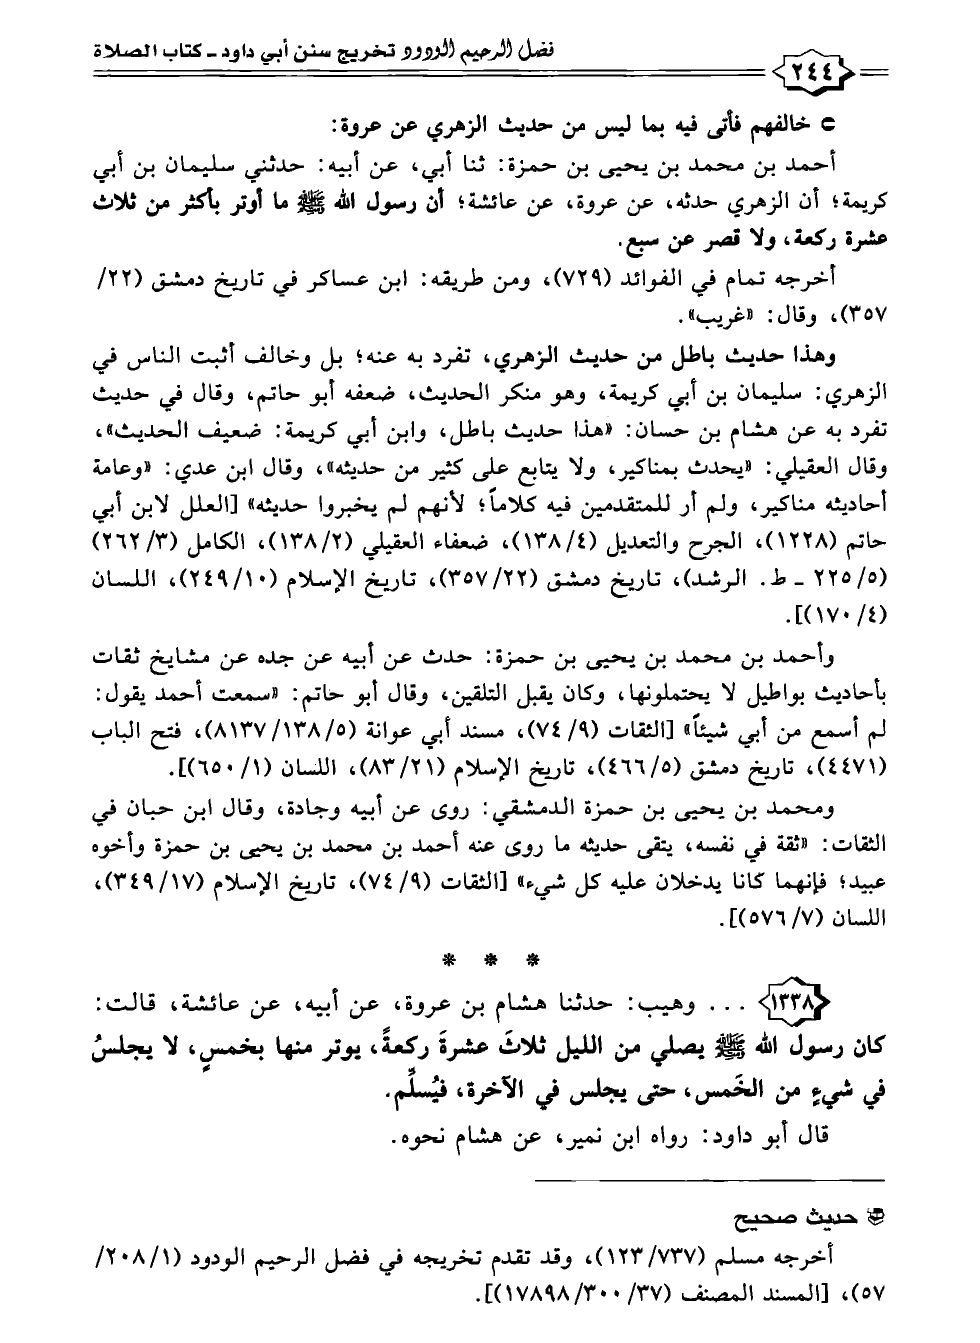 فضل الرحيم الودود تخريج سنن أبي داود - كتاب الصلاة
٢٤٤
خالفهم فأتى فيه بما ليس من حديث الزهري عن عروة:
أحمد بن محمد بن يحيى بن حمزة: ثنا أبي، عن أبيه: حدثني سليمان بن أبي
كريمة؛ أن الزهري حدثه، عن عروة، عن عائشة؛ أن رسول الله ﷺ ما أوتر بأكثر من ثلاث
عشرة ركعة، ولا قصر عن سبع.
أخرجه تمام في الفوائد (٧٢٩)، ومن طريقه: ابن عساكر في تاريخ دمشق (٢٢/
٣٥٧)، وقال: «غريب».
وهذا حديث باطل من حديث الزهري، تفرد به عنه؛ بل وخالف أثبت الناس في
الزهري: سليمان بن أبي كريمة، وهو منكر الحديث، ضعفه أبو حاتم، وقال في حديث
تفرد به عن هشام بن حسان: «هذا حديث باطل، وابن أبي كريمة: ضعيف الحديث»،
وقال العقيلي: «يحدث بمناكير، ولا يتابع على كثير من حديثه»، وقال ابن عدي: «وعامة
أحاديثه مناكير، ولم أر للمتقدمين فيه كلاماً؛ لأنهم لم يخبروا حديثه» [العلل لابن أبي
حاتم (١٢٢٨)، الجرح والتعديل (١٣٨/٤)، ضعفاء العقيلي (١٣٨/٢)، الكامل (٢٦٢/٣)
(٢٢٥/٥ - ط. الرشد)، تاريخ دمشق (٣٥٧/٢٢)، تاريخ الإسلام (٢٤٩/١٠)، اللسان
(١٧٠/٤)].
وأحمد بن محمد بن يحيى بن حمزة: حدث عن أبيه عن جده عن مشايخ ثقات
بأحاديث بواطيل لا يحتملونها، وكان يقبل التلقين، وقال أبو حاتم: «سمعت أحمد يقول:
لم أسمع من أبي شيئاً» [الثقات (٧٤/٩)، مسند أبي عوانة (٨١٣٧/١٣٨/٥)، فتح الباب
(٤٤٧١)، تاريخ دمشق (٤٦٦/٥)، تاريخ الإسلام (٨٣/٢١)، اللسان (٦٥٠/١)].
ومحمد بن يحيى بن حمزة الدمشقي: روى عن أبيه وجادة، وقال ابن حبان في
الثقات: «ثقة في نفسه، يتقى حديثه ما روى عنه أحمد بن محمد بن يحيى بن حمزة وأخوه
عبيد؛ فإنهما كانا يدخلان عليه كل شيء» [الثقات (٧٤/٩)، تاريخ الإسلام (٣٤٩/١٧)،
اللسان (٥٧٦/٧)].
* * *
١٣٣٨ ... وهيب: حدثنا هشام بن عروة، عن أبيه، عن عائشة، قالت:
كان رسول الله ﷺ يصلي من الليل ثلاثَ عشرةَ ركعةً، يوتر منها بخمسٍ، لا يجلسُ
في شيءٍ من الخَمس، حتى يجلس في الآخرة، فيُسلِّم.
قال أبو داود: رواه ابن نمير، عن هشام نحوه.
حديث صحيح
أخرجه مسلم (١٢٣/٧٣٧)، وقد تقدم تخريجه في فضل الرحيم الودود (٢٠٨/١/
٥٧)، [المسند المصنف (١٧٨٩٨/٣٠٠/٣٧)].